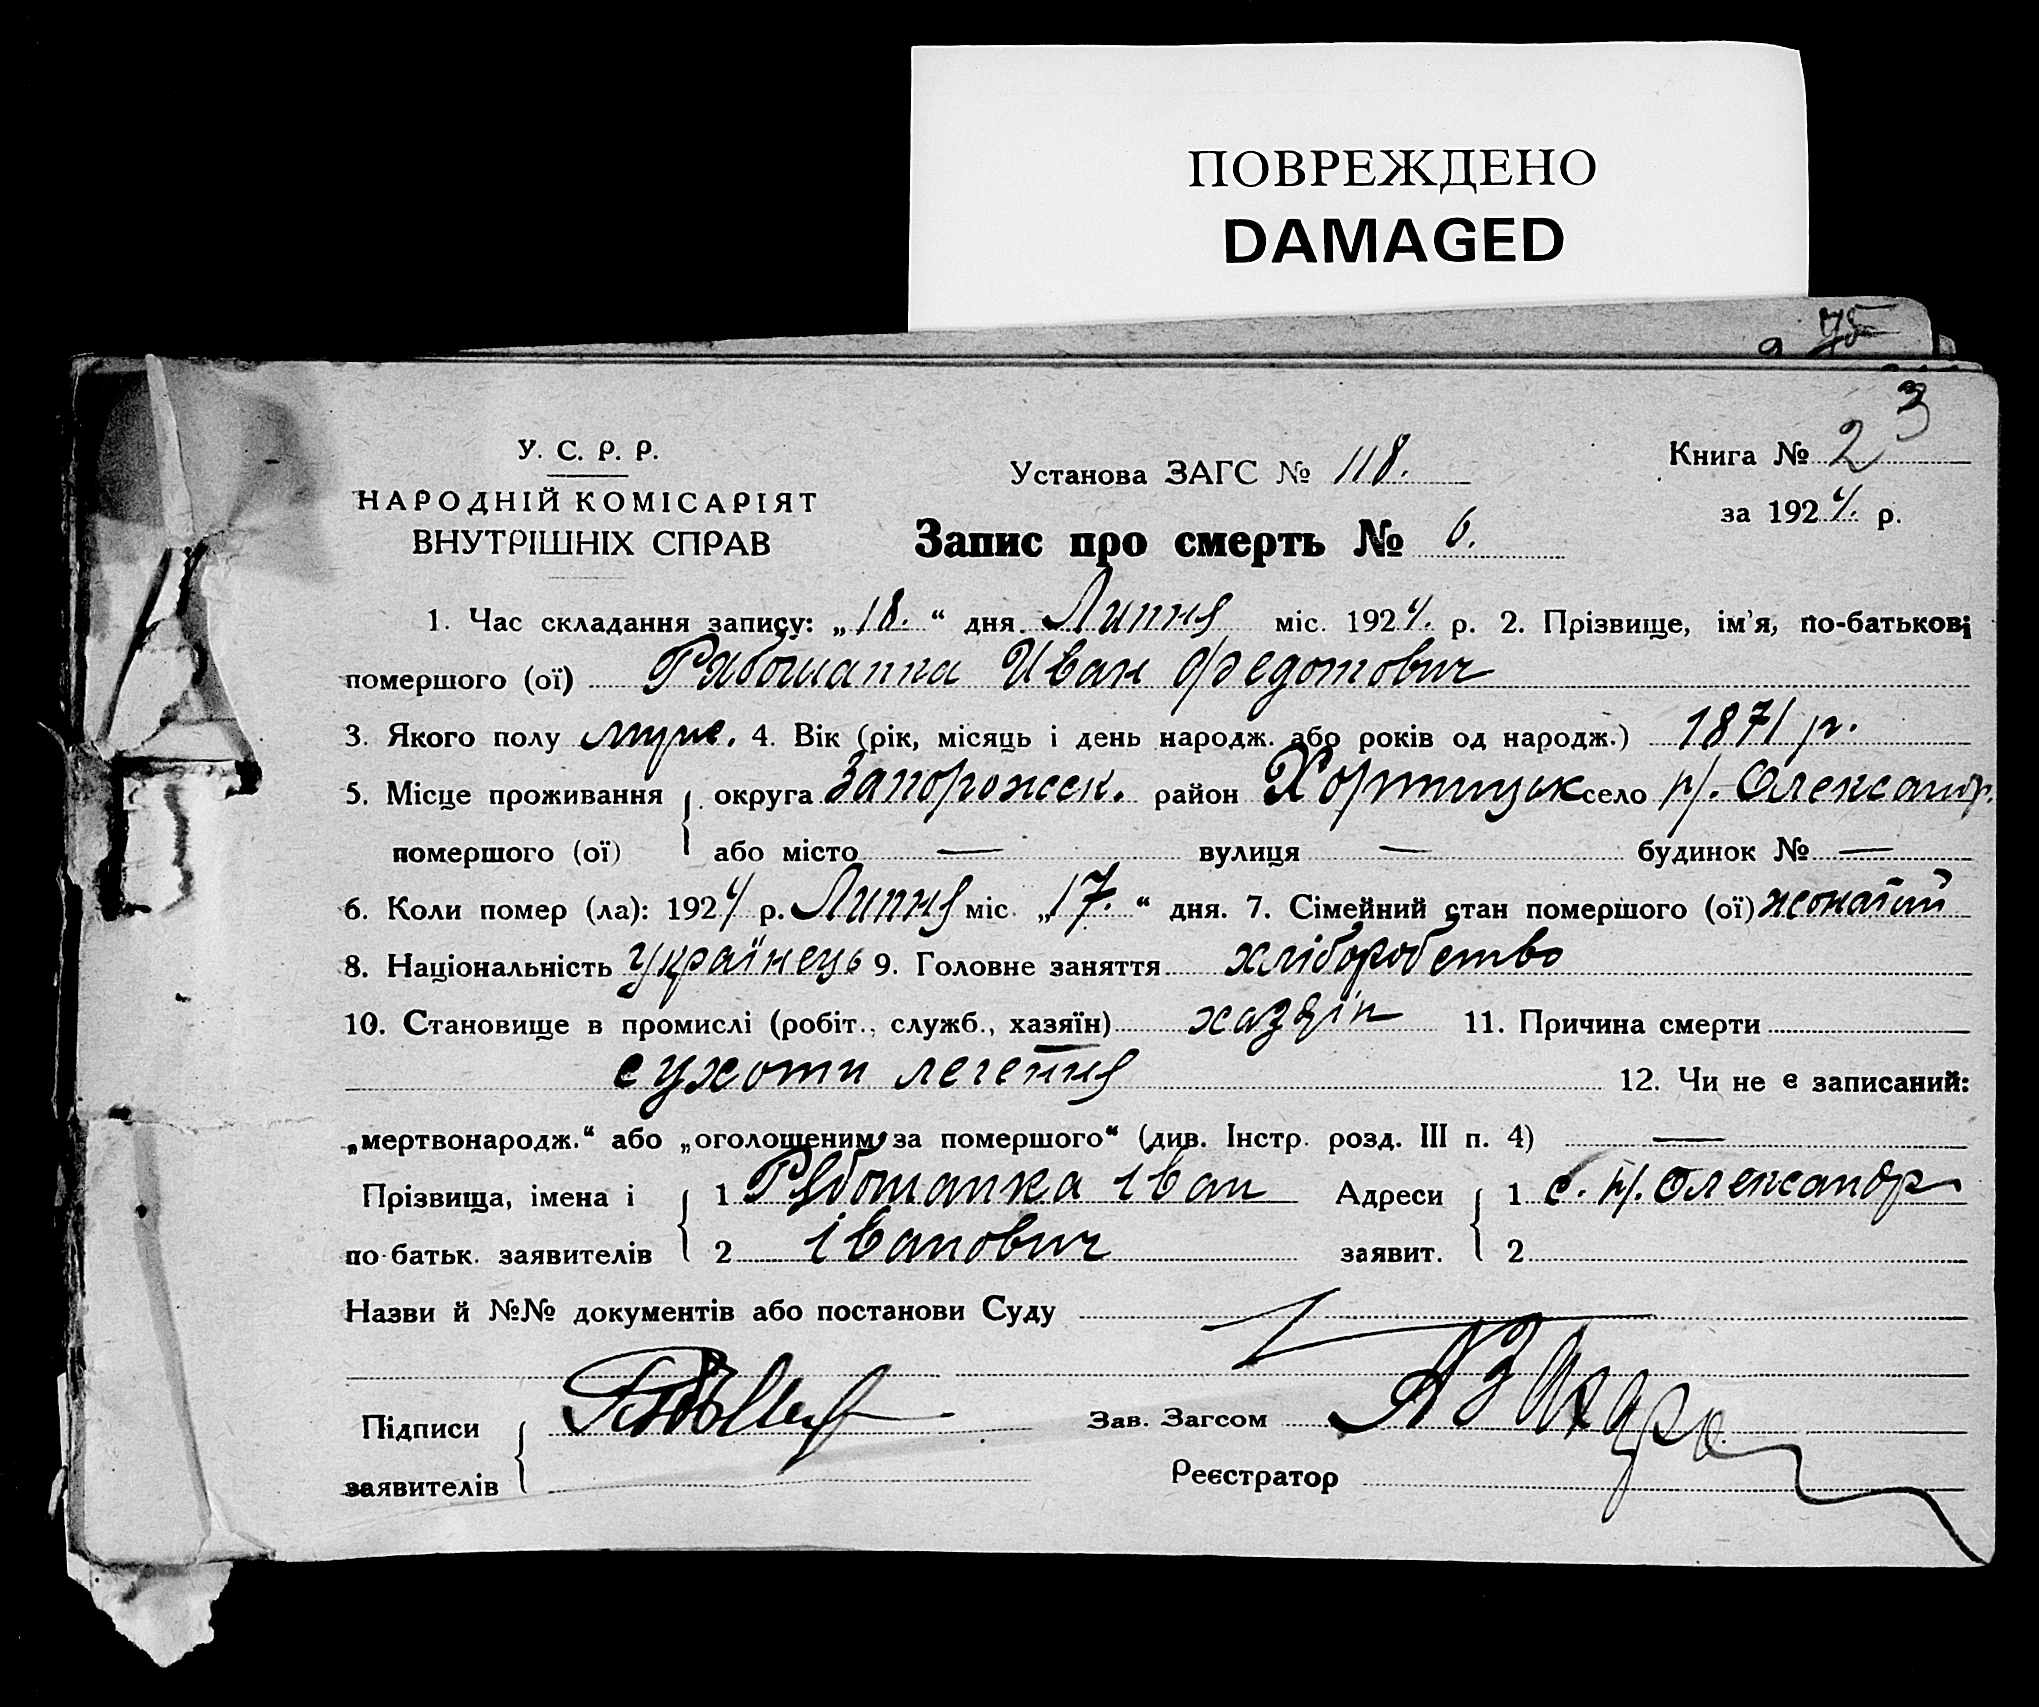 ПОВРЕЖДЕНО
DAMAGED
75
3
У. С. Р. Р.
НАРОДНІЙ КОМІСАРІЯТ
ВНУТРІШНІХ СПРАВ
Установа ЗАГС № 118.
Книга № 2
за 1924. р.
Запис про смерть № 6.
1. Час складання запису: „18.“ дня Липня міс. 1924. р. 2. Прізвище, ім'я, по-батькові
помершого (ої) Рябошапка Иван Федотович
3. Якого полу муж. 4. Вік (рік, місяць і день народж. або років од народж.) 1871 р.
5. Місце проживання округа Запорожск. район Хортицьк село н/. Олександр.
помершого (ої) або місто — вулиця — будинок № —
6. Коли помер (ла): 1924 р. Липня міс. „17.“ дня. 7. Сімейний стан помершого (ої) жонатий
8. Національність Українець 9. Головне заняття хліборобство
10. Становище в промислі (робіт., служб., хазяїн) хазяїн 11. Причина смерти
сухоти легення 12. Чи не є записаний:
„мертвонародж.“ або „оголошеним за помершого“ (див. Інстр. розд. III п. 4) —
Прізвища, імена і 1 Рябошапка іван Адреси 1 с. н/. Олександр
по батьк. заявителів 2 іванович заявит. 2
Назви й №№ документів або постанови Суду
Підписи Зав. Загсом
заявителів Реєстратор